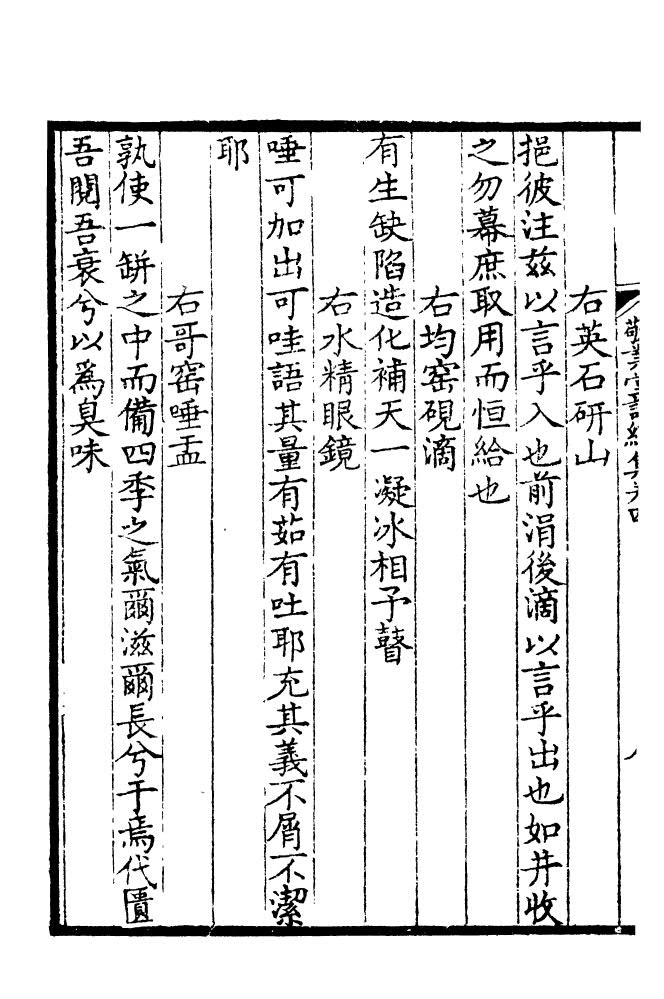 右英石研山
挹彼注茲以言乎入也前涓後滴以言乎出也如井收
之勿幕庶取用而恒給也
右均窑硯滴
有生缺陷造化補天一凝冰相予瞽
右水精眼鏡
唾可加出可哇語其量有茹有吐耶充其義不屑不潔
耶
右哥窑唾盂
孰使一缾之中而備四季之氣爾滋爾長兮于焉代匱
吾閱吾衰兮以爲臭味